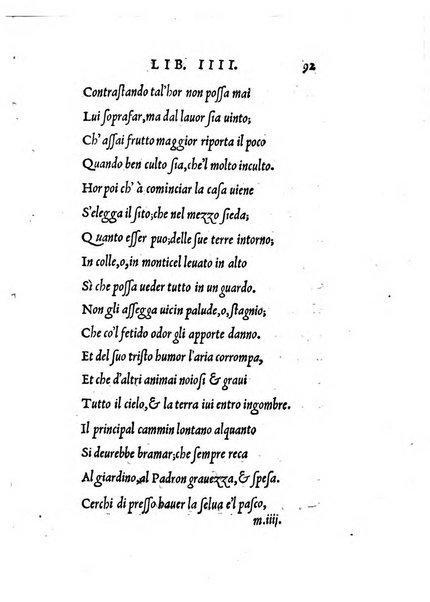 LIB. IIII. 92
Contraſtando tal'hor non poſſa mai
Lui ſoprafar, ma dal lauor ſia uinto;
Ch' aſſai frutto maggior riporta il poco
Quando ben culto ſia, che'l molto inculto.
Hor poi ch' à cominciar la caſa uiene
S'elegga il ſito; che nel mezzo ſieda;
Quanto eſſer puo; delle ſue terre intorno;
In colle, o, in monticel leuato in alto
Sì che poſſa ueder tutto in un guardo.
Non gli aſſegga uicin palude, o, ſtagnio;
Che co'l fetido odor gli apporte danno.
Et del ſuo triſto humor l'aria corrompa,
Et che d'altri animai noioſi & graui
Tutto il cielo, & la terra iui entro ingombre.
Il principal cammin lontano alquanto
Si deurebbe bramar; che ſempre reca
Al giardino, al Padron grauezza, & ſpeſa.
Cerchi di preſſo hauer la ſelua e'l paſco,
m.iiij.